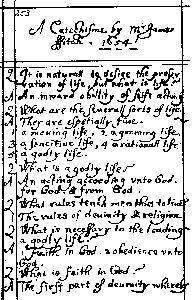 253
A Catechisme by Mr James
Fitch. 1654
Q It is naturall to desire the preser
vation of life, but what is life.
A An inward ability of selfe acting
Q What are the severall sorts of life.
A They are espetially five.
1 a moving life, 2 a growing life,
3 a sencitive life, 4 a rationall life
5 a godly life.
Q What is a godly life.
A An acting according unto God.
for God, & from God.
Q What rules teach man that to live
A The rules of devinity & religion.
Q What is necessary to the leading
a godly life.
A Faith in God & obedience unto
God.
Q What is faith in God.
A The first part of devinity whereby